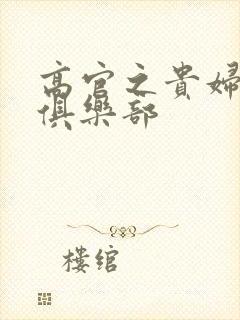 高官之貴婦
俱樂部
樓綰